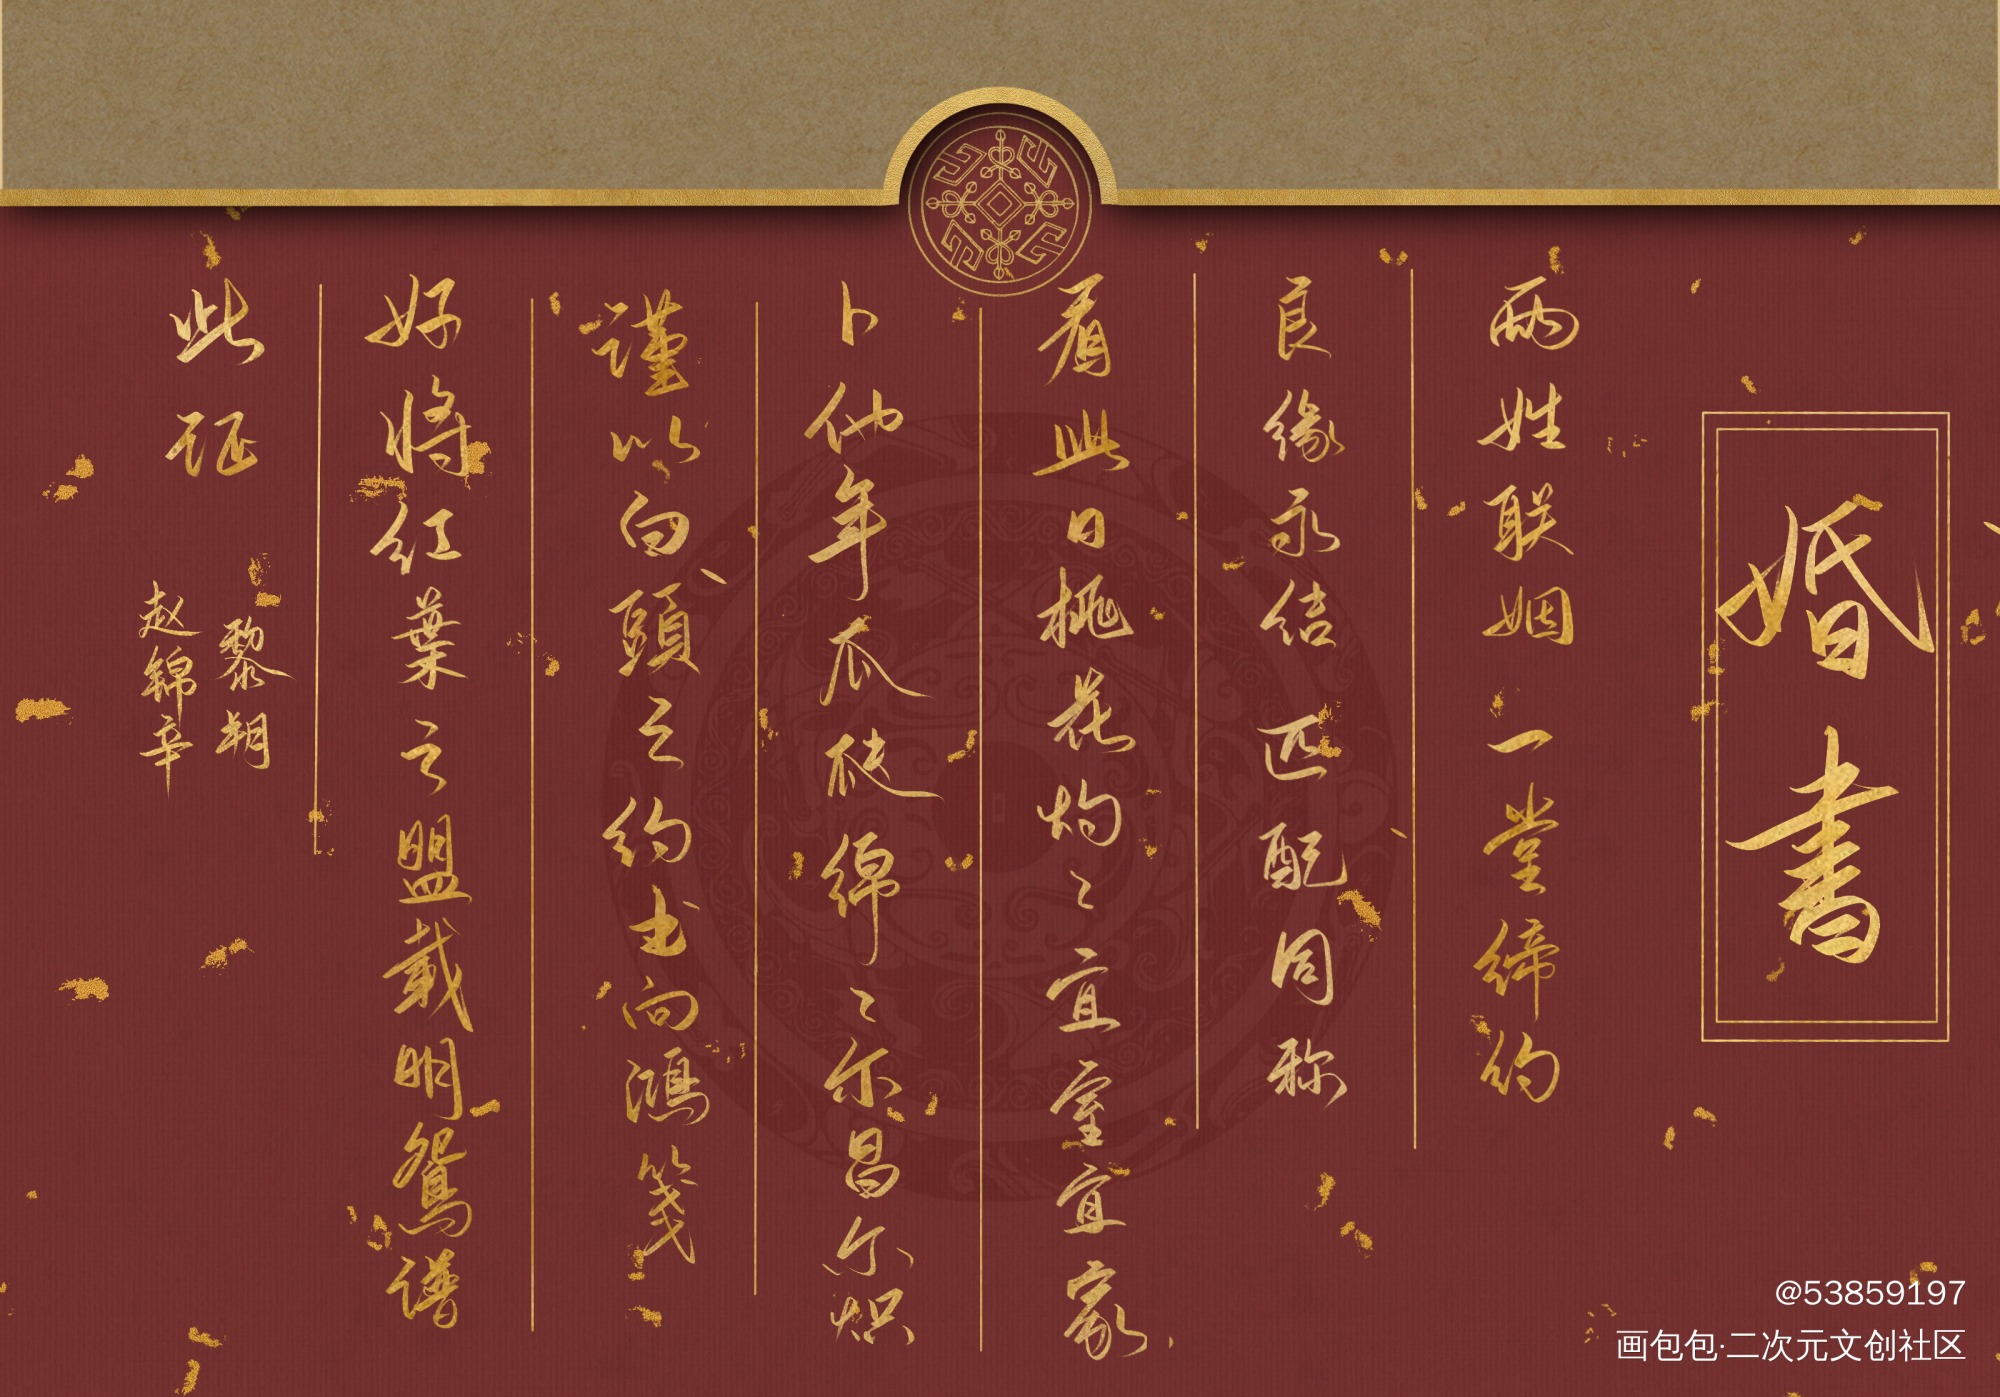 婚書
两姓联姻 一堂缔约
良缘永结 匹配同称
看此日桃花灼〻宜室宜家
卜他年瓜瓞绵〻尔昌尔炽
謹以白頭之约书向鴻笺
好将红葉之盟載明鴛谱
此证
黎朔
赵锦辛
@53859197
画包包·二次元文创社区